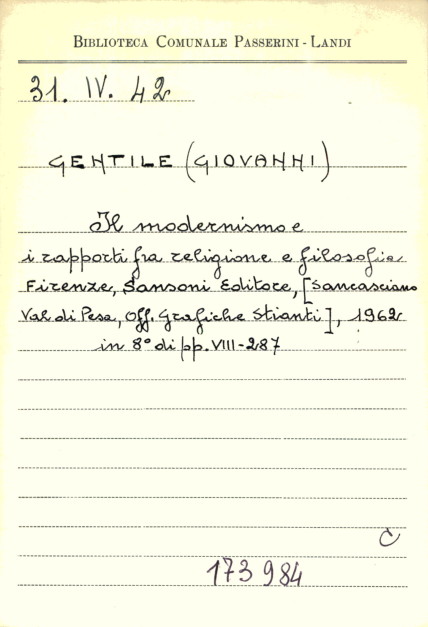 BIBLIOTECA COMUNALE PASSERINI - LANDI
31. IV. 42
GENTILE (GIOVANNI)
Il modernismo e
i rapporti fra religione e filosofia.
Firenze, Sansoni Editore, [Sancasciano
Val di Pesa, Off. Grafiche Stianti], 1962
in 8° di pp. VIII-287
C
173984